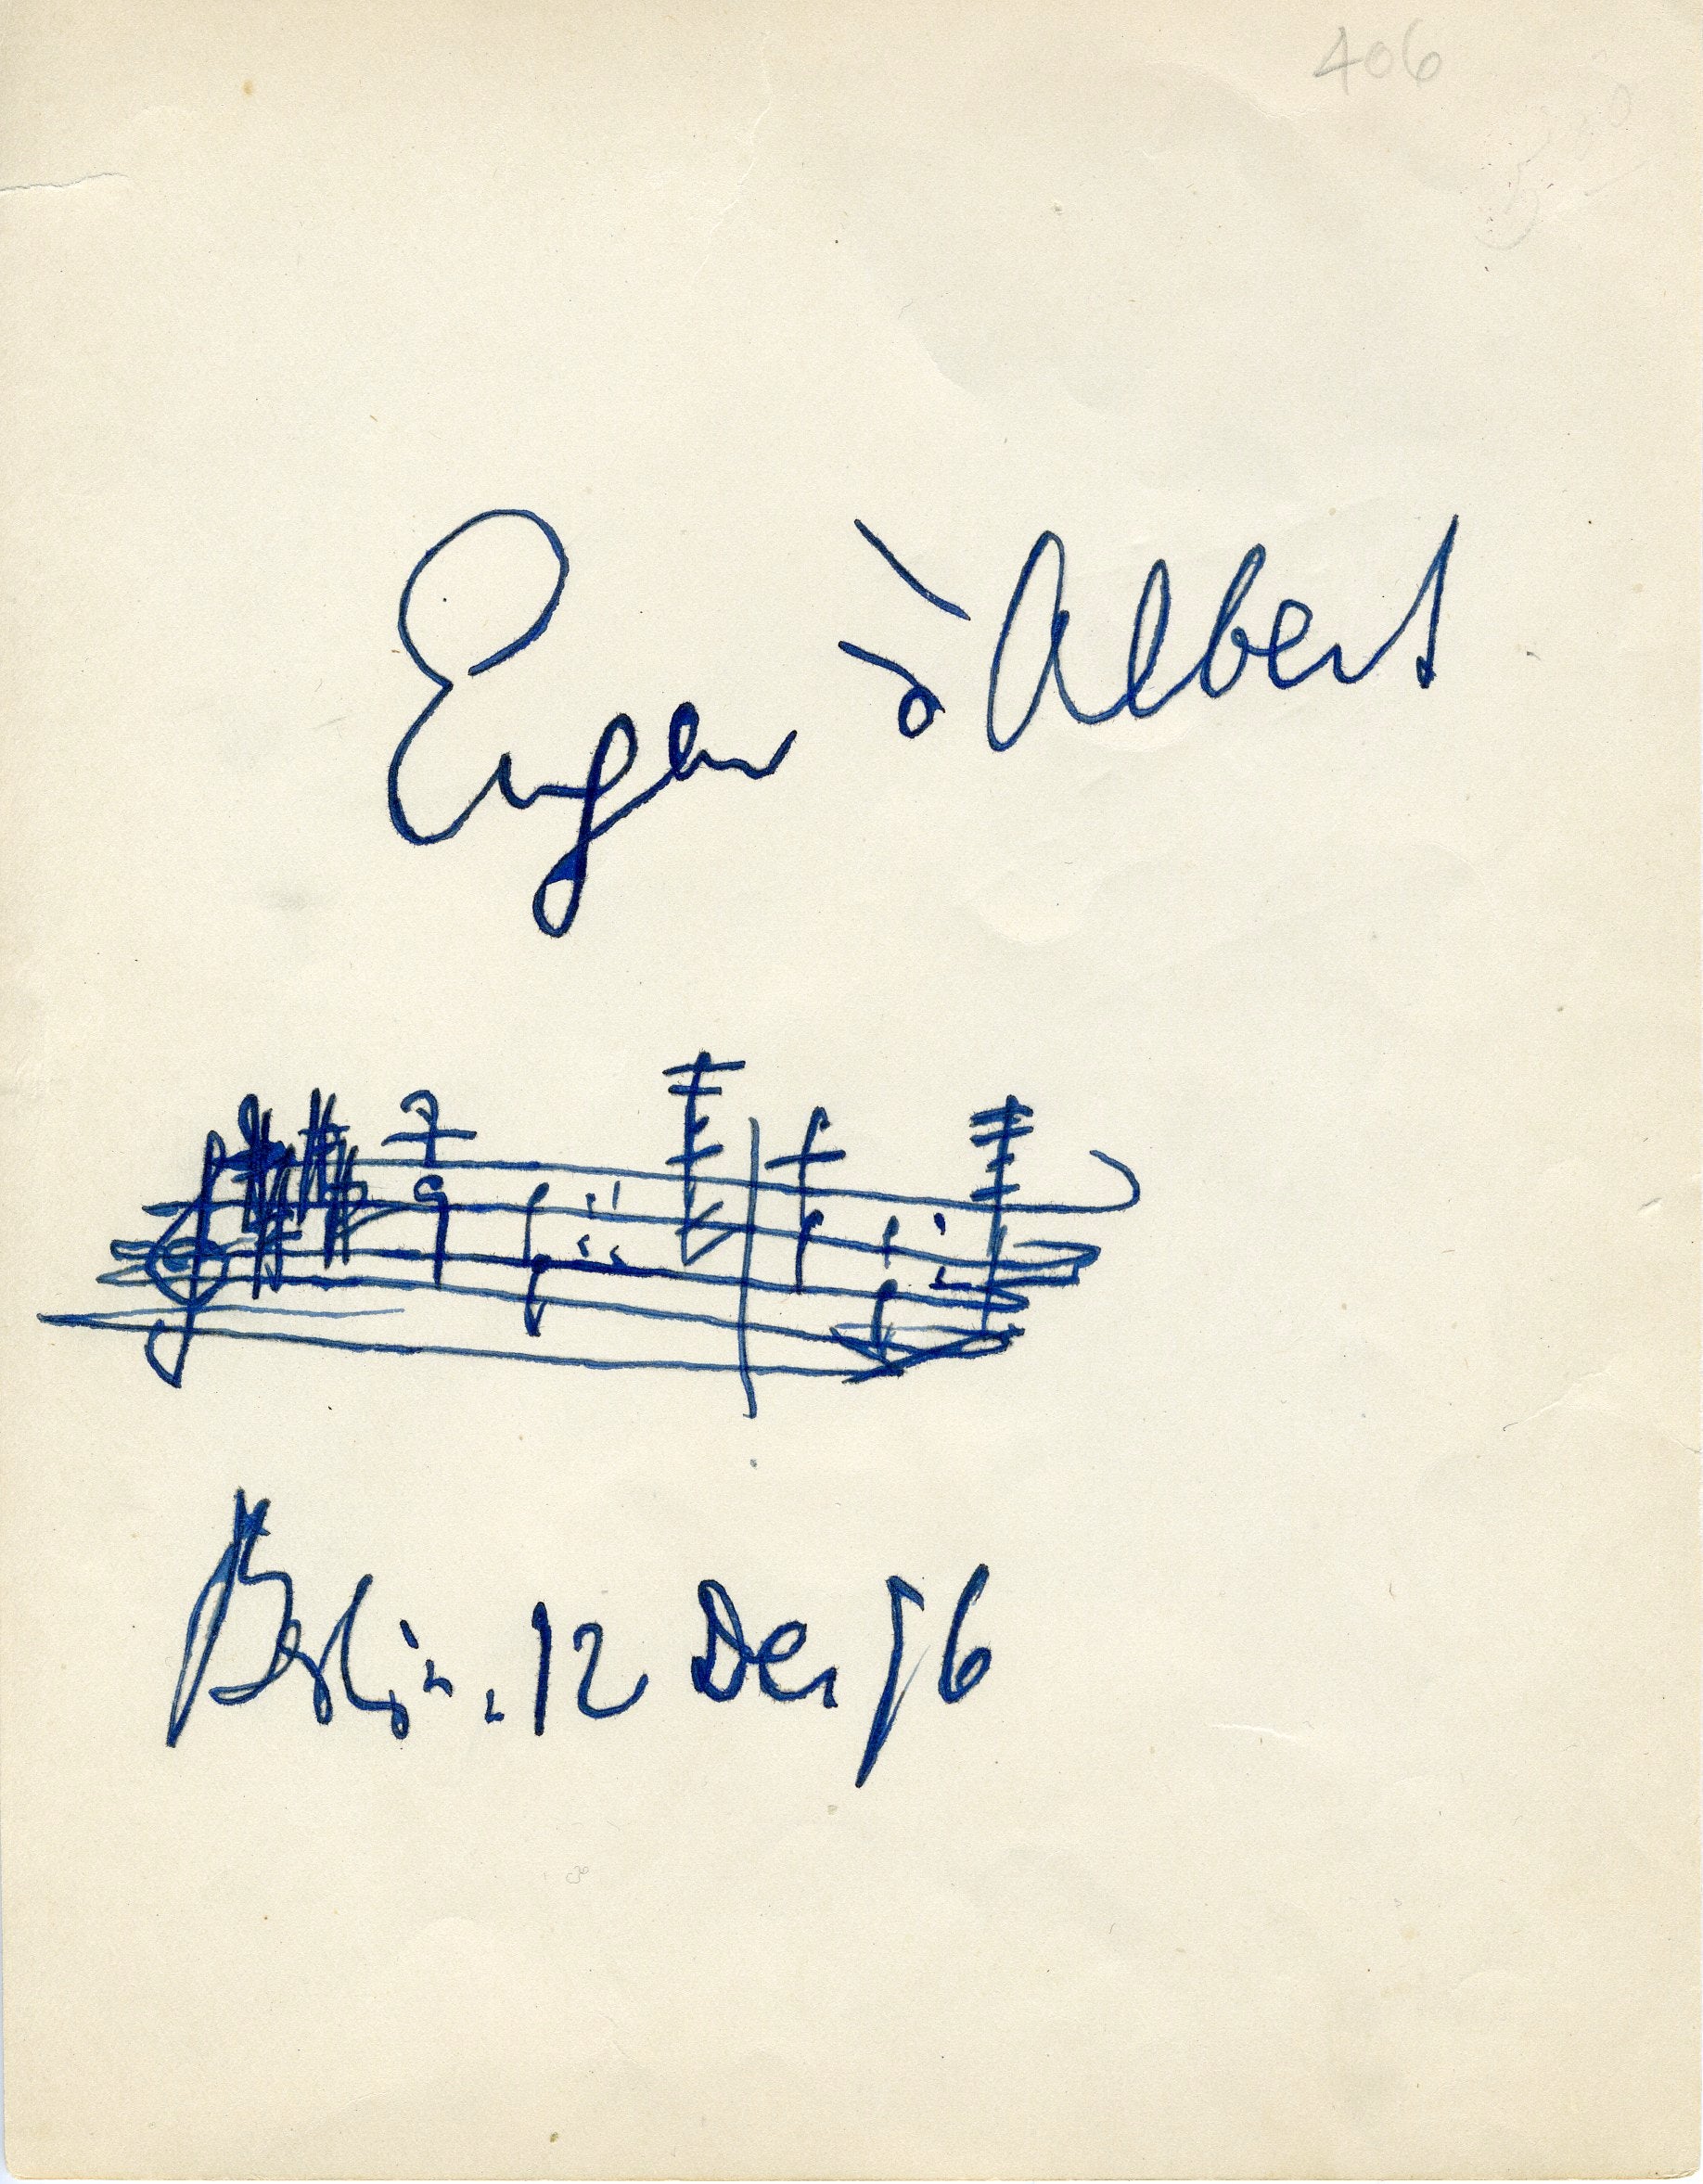 406
Eugen d'Albert
Berlin. 12 Dez 96